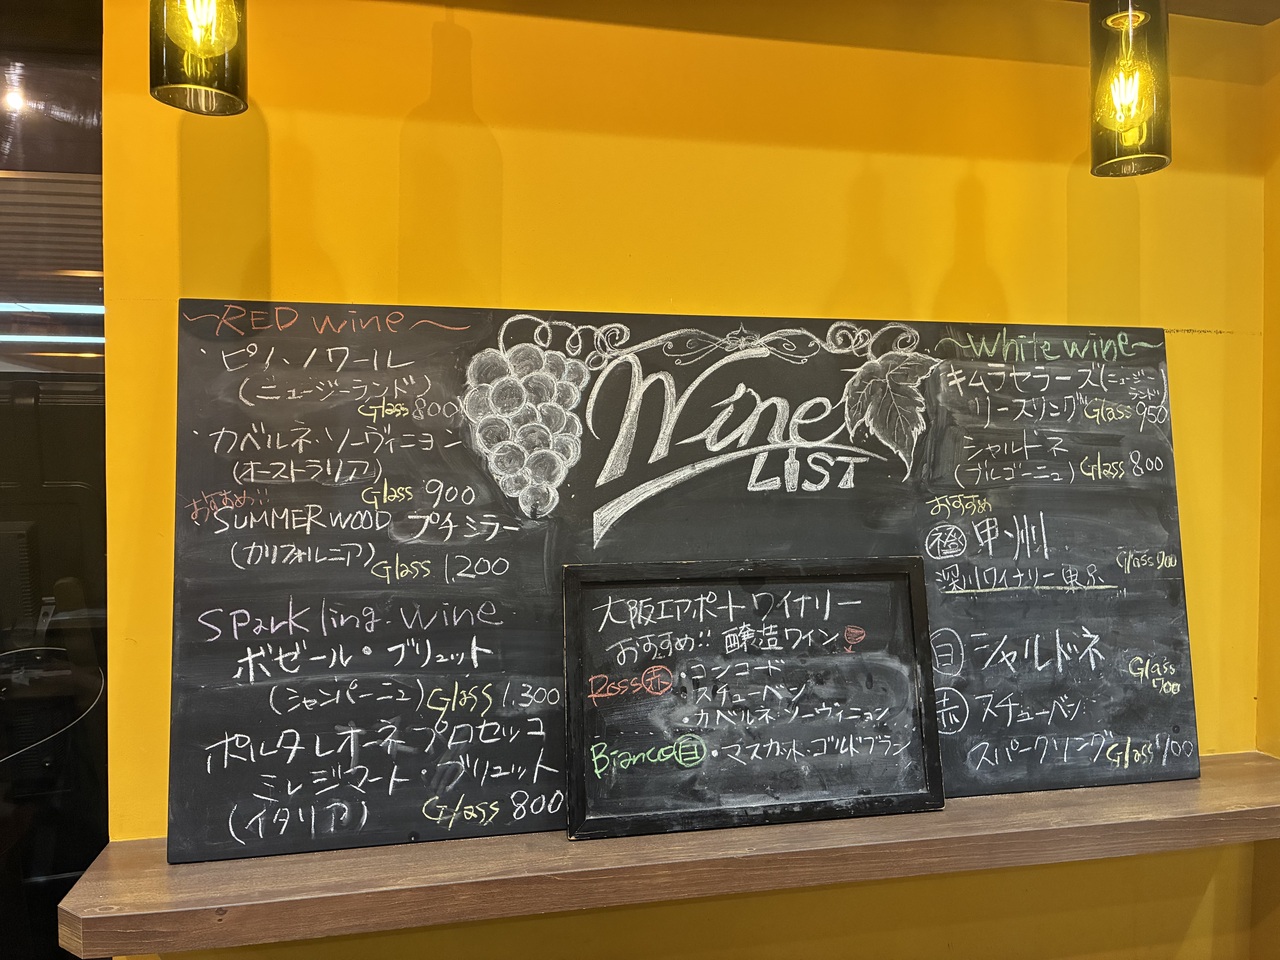 ~RED wine~
・ピノ・ノワール
(ニュージーランド)
Glass 800
・カベルネ・ソーヴィニョン
(オーストラリア)
Glass 900
おすすめ!!
SUMMERWOOD プチシラー
(カリフォルニア)
Glass 1,200
Sparkling wine
ボゼール・ブリュット
(シャンパーニュ) Glass 1,300
ポルタレオーネプロセッコ
ミレジマート・ブリュット
(イタリア)
Glass 800
Wine
LIST
大阪エアポートワイナリー
おすすめ!! 醸造ワイン
Ross 赤 ・コンコード
・スチューベン
・カベルネ・ソーヴィニョン
Bianco 白 ・マスカット・ゴルドブラン
~White wine~
キムラセラーズ(ニュージーランド)
リースリング Glass 950
シャルドネ
(ブルゴーニュ) Glass 800
おすすめ
橙 甲州
深川ワイナリー東京
Glass 900
白 シャルドネ
Glass
700
赤 スチューベン
スパークリング Glass 1,100